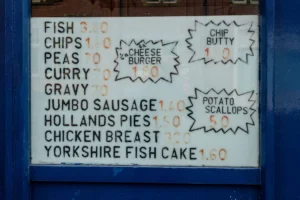 FISH 3.60
CHIPS
PEAS
CURRY
GRAVY
JUMBO SAUSAGE 1.40
HOLLANDS PIES
CHICKEN BREAST
YORKSHIRE FISH CAKE 1.60
CHEESE
BURGER
1.60
CHIP
BUTTY
POTATO
SCALLOPS